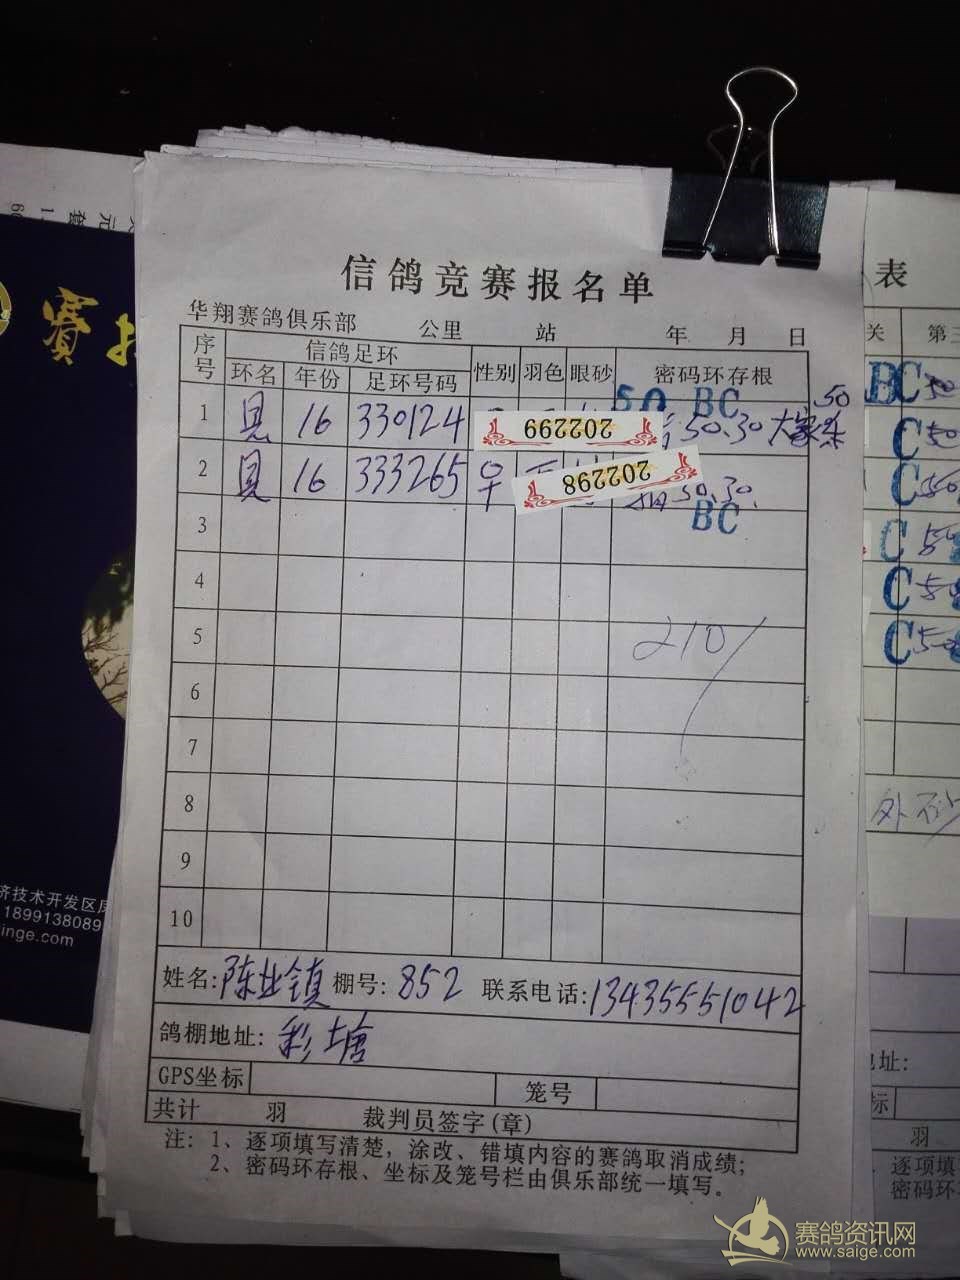 信鸽竞赛报名单
华翔赛鸽俱乐部 公里 站 年 月 日
序号 信鸽足环 性别 羽色 眼砂 密码环存根
环名 年份 足环号码
50 BC 50
1 16 330124 202299 50.30 大家乐
2 16 333265 202298 50.30.
BC
3
4
5 210/
6
7
8
9
10
姓名:陈业镇 棚号:852 联系电话:13435551042
鸽棚地址: 彩塘
GPS坐标 笼号
共计 羽 裁判员签字(章)
注: 1、逐项填写清楚，涂改、错填内容的赛鸽取消成绩;
2、密码环存根、坐标及笼号栏由俱乐部统一填写。
表
关 第三
BC 50
C 50
C 50
C 50
C 50
C 50
外砂
地址:
标
羽
、逐项填
密码环
賽
济技术开发区
1899138089
inge.com
赛鸽资讯网
www.saige.com